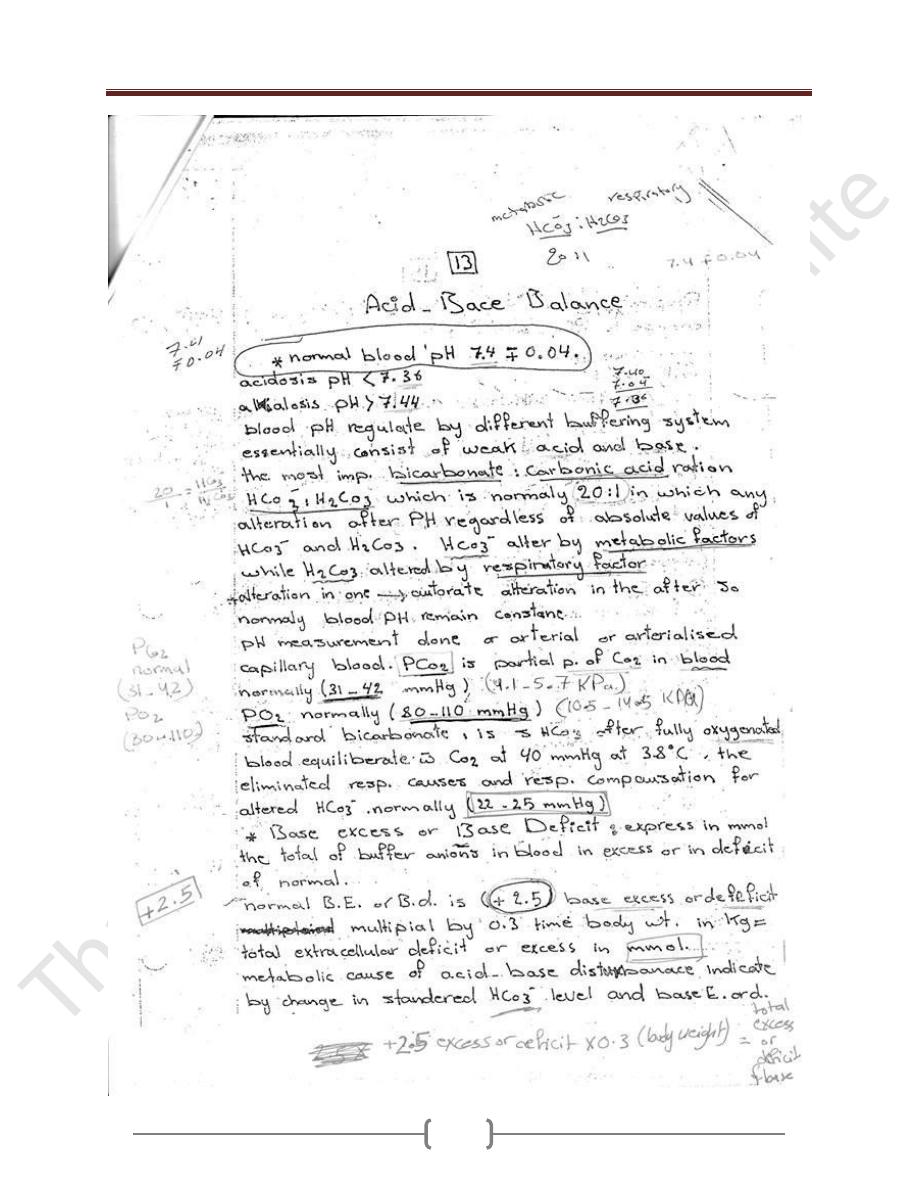 metabolic respiratory
HCO3⁻ : H2CO3
20:1
7.4 ∓ 0.04
13
Acid - Bace Balance
7.41
∓ 0.04
* normal blood pH 7.4 ∓ 0.04.
acidosis pH < 7.36
7.40
7.04
7.36
alkalosis pH > 7.44
blood pH regulate by different buffering system
essentially consist of weak acid and base.
the most imp. bicarbonate : carbonic acid ration
20/1 = HCO3/H2CO3
HCO3⁻ : H2CO3 which is normaly 20:1 in which any
alteration after PH regardless of absolute values of
HCO3⁻ and H2CO3. HCO3⁻ alter by metabolic factors
while H2CO3 altered by respiratory factor
* alteration in one → alteration in the after so
normaly blood PH remain constanc
pH measurement done or arterial or arterialised
PCo2
normal
(31-42)
PO2
(80-110)
capillary blood. PCO2 is partial p. of Co2 in blood
normally (31-42 mmHg) (4.1-5.7 KPa)
PO2 normally (80-110 mmHg) (10.5-14.5 KPa)
standard bicarbonate, is HCO3 after fully oxygenated
blood equiliberate Co2 at 40 mmHg at 3.8°C, the
eliminated resp. causes and resp. compansation for
altered HCO3⁻. normally (22-25 mmHg)
* Base excess or Base Deficit : express in mmol
the total of buffer anions in blood in excess or in deficit
of normal.
+2.5
normal B.E. or B.d. is (+ 2.5) base excess or deficit
multipial by 0.3 time body wt. in Kg =
total extracellular deficit or excess in mmol.
metabolic cause of acid-base disturbanace, indicate
by change in standered HCO3⁻ level and base E. or d.
+2.5 excess or deficit x 0.3 (body weight) = total
excess
or
deficit
f base